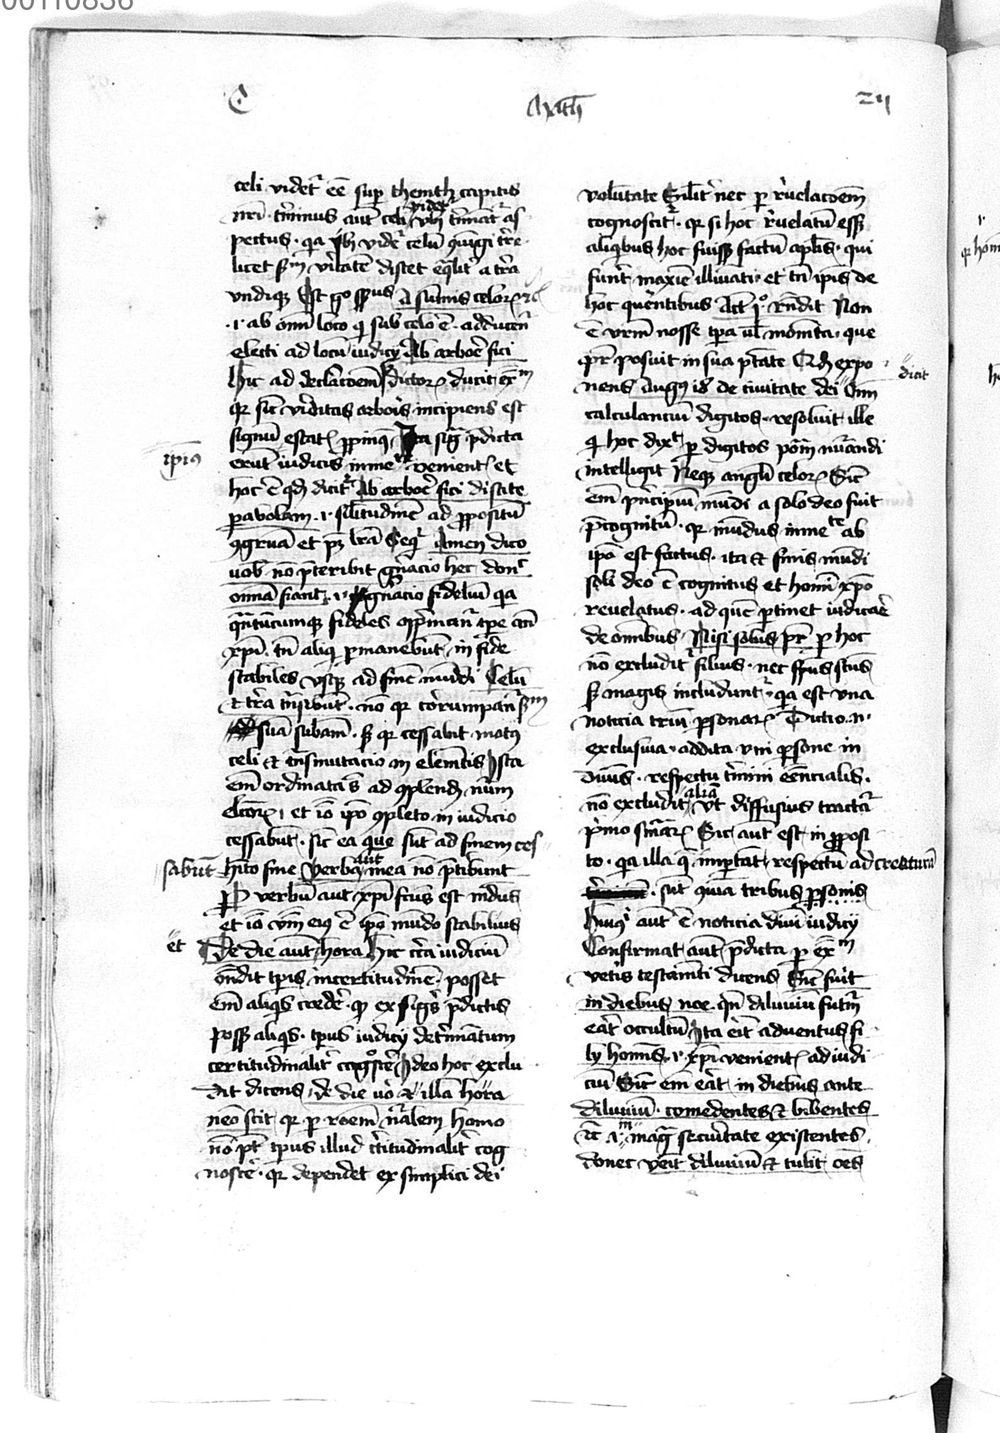 00110836
C Math 24
celi videt᷑ eē sup themth capitis
nr̄i · t̄minus aut̄ celi videt᷑ vbi t̄minat᷑ as
pectus · qa ibi vide᷑ celū ꝯiūgi t̄re ·
licet scd̄m v̄itatē distet eqlit᷑ a t̄ra
vndiqꝫ Est go sensus A summis celoꝝ
·i· ab omī loco q sub celo ē · adducent᷑
electi ad locū iudicij Ab arbore fici
Hic ad declacoēm dictoꝝ ducit ex̄m
qꝛ sic viriditas arboris incipiens est
signū estatꝭ ꝓpinq̄ · Ita sig̅ p̄dicta
erūt iudicis inme venientꝭ et
ipsius
hoc ē qd̄ dicit᷑ Ab arbore fici discite
parabolam ·i· sil̄itudinē ad ꝓpositū
ꝯgruā et pꝫ lr̄a Seq᷑ Amen dico
uob̄ nō p̄teribit gn̄acio hec donᷣ
omīa fiant ·i· gn̄acio fideliū qa
qn̄tūcumqꝫ fideles opp̄mant᷑ tpe an̄
xp̄i · tn̄ aliq̄ p̄manebūt in fide
stabiles vsqꝫ ad finē mūdi Celū
et t̄ra tn̄sibūt · nō qꝛ corūmpant᷑ scd̄m
suā subām · sꝫ qꝛ cessabit motus
celi et tn̄smutacio in elemētis Ista
em̄ ordinata s̄ ad ꝯplend̄ nūm
electoꝝ · et iō ip̄o ꝯpleto in iudicio
cessabūt · sic ea que sūt ad finem ces
sabūt hito fine Verba aut̄ mea nō p̄tibunt
P verbū aut̄ xp̄i fcūs est mūdus
et iō v̄m eiꝰ ē ipō mūdo stabilius
et De die aut̄ et hora Hic cir̄a iudiciū
ōndit tp̄is incertitudinē · posset
em̄ aliqs crede᷑ · qꝫ ex sigs p̄dictis
posset aliqs · tp̄us iudicij det̄minatum
certitudinalit᷑ cogoscere Ideo hoc exclu
dit dicens · de die v̄o et illa hora
nemo scit qꝛ p roēm nr̄alem homo
nō pt̄ tp̄us illud c̄titudinalit᷑ cog
noscē · qꝛ dependet ex simplici dei
volūtate nec p r̄uelacoēm
cognoscit᷑ · qꝛ si hoc r̄uelatū esset
aliqbus hoc fuisset factū apl̄is · qui
fūnt maxīe illūiati · et tn̄ ip̄is de
hoc quer̄entibus Act̄ pᷣo rn̄dit Non
ē vr̄m nosse tp̄a ul̄ momēta · que
pr̄ posuit in sua p̄tate Qd̄ expo
nens Augꝰ 18 de ciuitate dei dicit Oīm
calculanciū digitos · resoluit ille
q̄ hoc dix̄t p digitos p̄om̄ nūandi
intelligit Neqꝫ angli celoꝝ Sic
em̄ principiū mūdi a solo deo fuit
p̄cognitū · qꝛ mūdus inme te ab
ipō est factus · ita et finis mūdi
soli deo ē cognitus et homī xp̄o
reuelatus · ad quē p̄tinet iudicare
de omībus · Nisi solus pr̄ p hoc
nō excludit᷑ filius · nec sp̄us sctūs
sꝫ magis includūnt᷑ · qa est vna
noticia triū p̄sonaꝝ Dictio n̄
exclusiua · addita vni p̄sone in
diuīs · respectu t̄mini eēncialis ·
nō excludit aliā vt diffusius tractat᷑
p̄imo sn̄iaꝝ Sic aut̄ est in ꝓposi
to · qa illa q̄ importat respectū ad creaturā
· sūt ꝯūia tribus p̄sonis
Huiꝰi aut̄ ē noticia diui iudicij
Confirmat aut̄ p̄dicta p ex̄m
vetīs testamēti dicens Sic fuit
in diebus noe · qn̄ diluuiū futūr
erat occultū Ita erit aduentus fi
lij homīs ·i· xp̄i venientꝭ ad iudi
ciū Sic em̄ erāt in diebus ante
diluuiū · comedentes et bibentes
i in mag̅ securitate existentes ·
donec venit diluuiū et tulit oēs